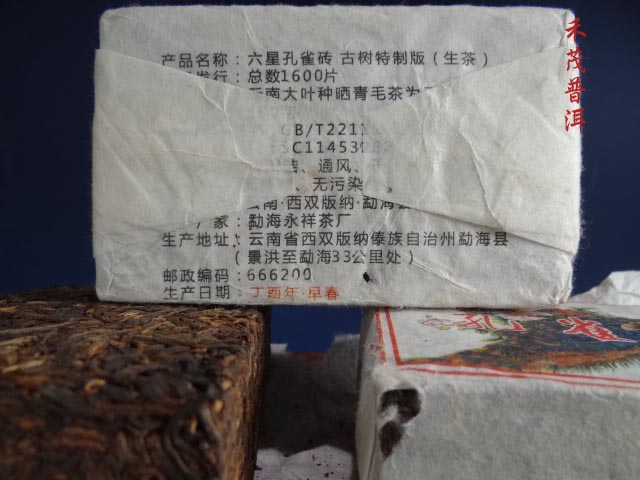 禾茂普洱
产品名称：六星孔雀砖 古树特制版（生茶）
发行：总数1600片
云南大叶种晒青毛茶为
GB/T2211
SC1145308
洁、通风、
、无污染
云南·西双版纳·勐海县
家：勐海永祥茶厂
生产地址：云南省西双版纳傣族自治州勐海县
（景洪至勐海33公里处）
邮政编码：666200
生产日期：丁酉年·早春
孔雀